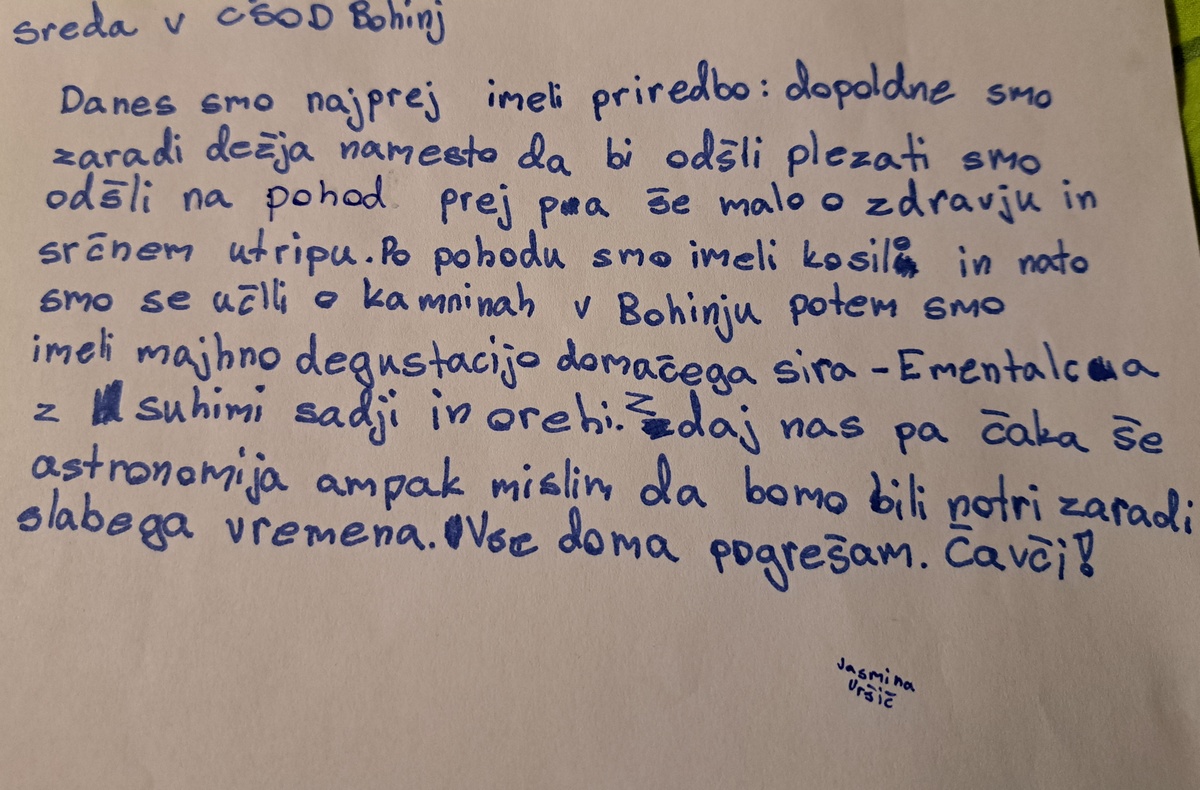 sreda v CŠOD Bohinj
Danes smo najprej imeli priredbo: dopoldne smo
zaradi dežja namesto da bi odšli plezati smo
odšli na pohod prej pa še malo o zdravju in
srčnem utripu. Po pohodu smo imeli kosilo in nato
smo se učili o kamninah v Bohinju potem smo
imeli majhno degustacijo domačega sira - Ementalca
z suhimi sadji in orehi. Zdaj nas pa čaka še
astronomija ampak mislim da bomo bili notri zaradi
slabega vremena. Vse doma pogrešam. Čavči!
Jasmina
Uršič